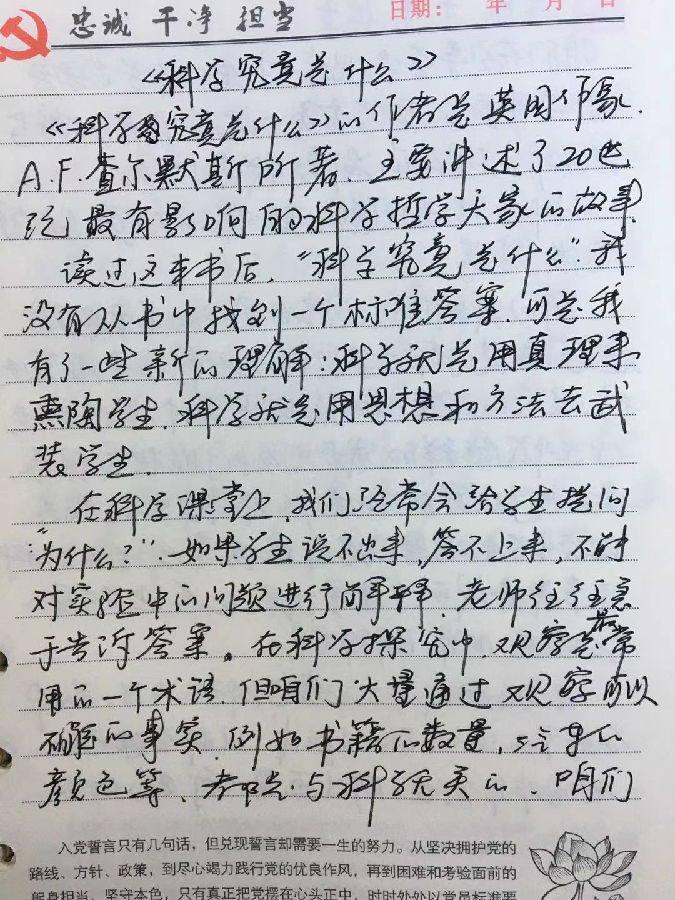 忠诚 干净 担当
日期： 年 月 日
《科学究竟是什么》
《科学究竟是什么》的作者是英国作家
A.F.查尔默斯所著.主要讲述了20世
纪最有影响的科学哲学大家的故事.
读过这本书后，“科学究竟是什么”.我
没有从书中找到一个标准答案.可是我
有了一些新的理解：科学就是用真理来
熏陶学生.科学就是用思想和方法去武
装学生.
在科学课堂上，我们经常会给学生提问
“为什么？”.如果学生说不出来，答不上来，不能
对实验中的问题进行解释.老师往往急
于告诉答案。在科学探究中.观察是最常
用的一个术语.但咱们大量通过观察可以
确定的事实.例如书籍的数量，汽车的
颜色等、都是与科学无关的.咱们
入党誓言只有几句话，但兑现誓言却需要一生的努力。从坚决拥护党的
路线、方针、政策，到尽心竭力践行党的优良作风，再到困难和考验面前的
挺身担当、坚守本色，只有真正把党摆在心头正中，时时处处以党员标准要